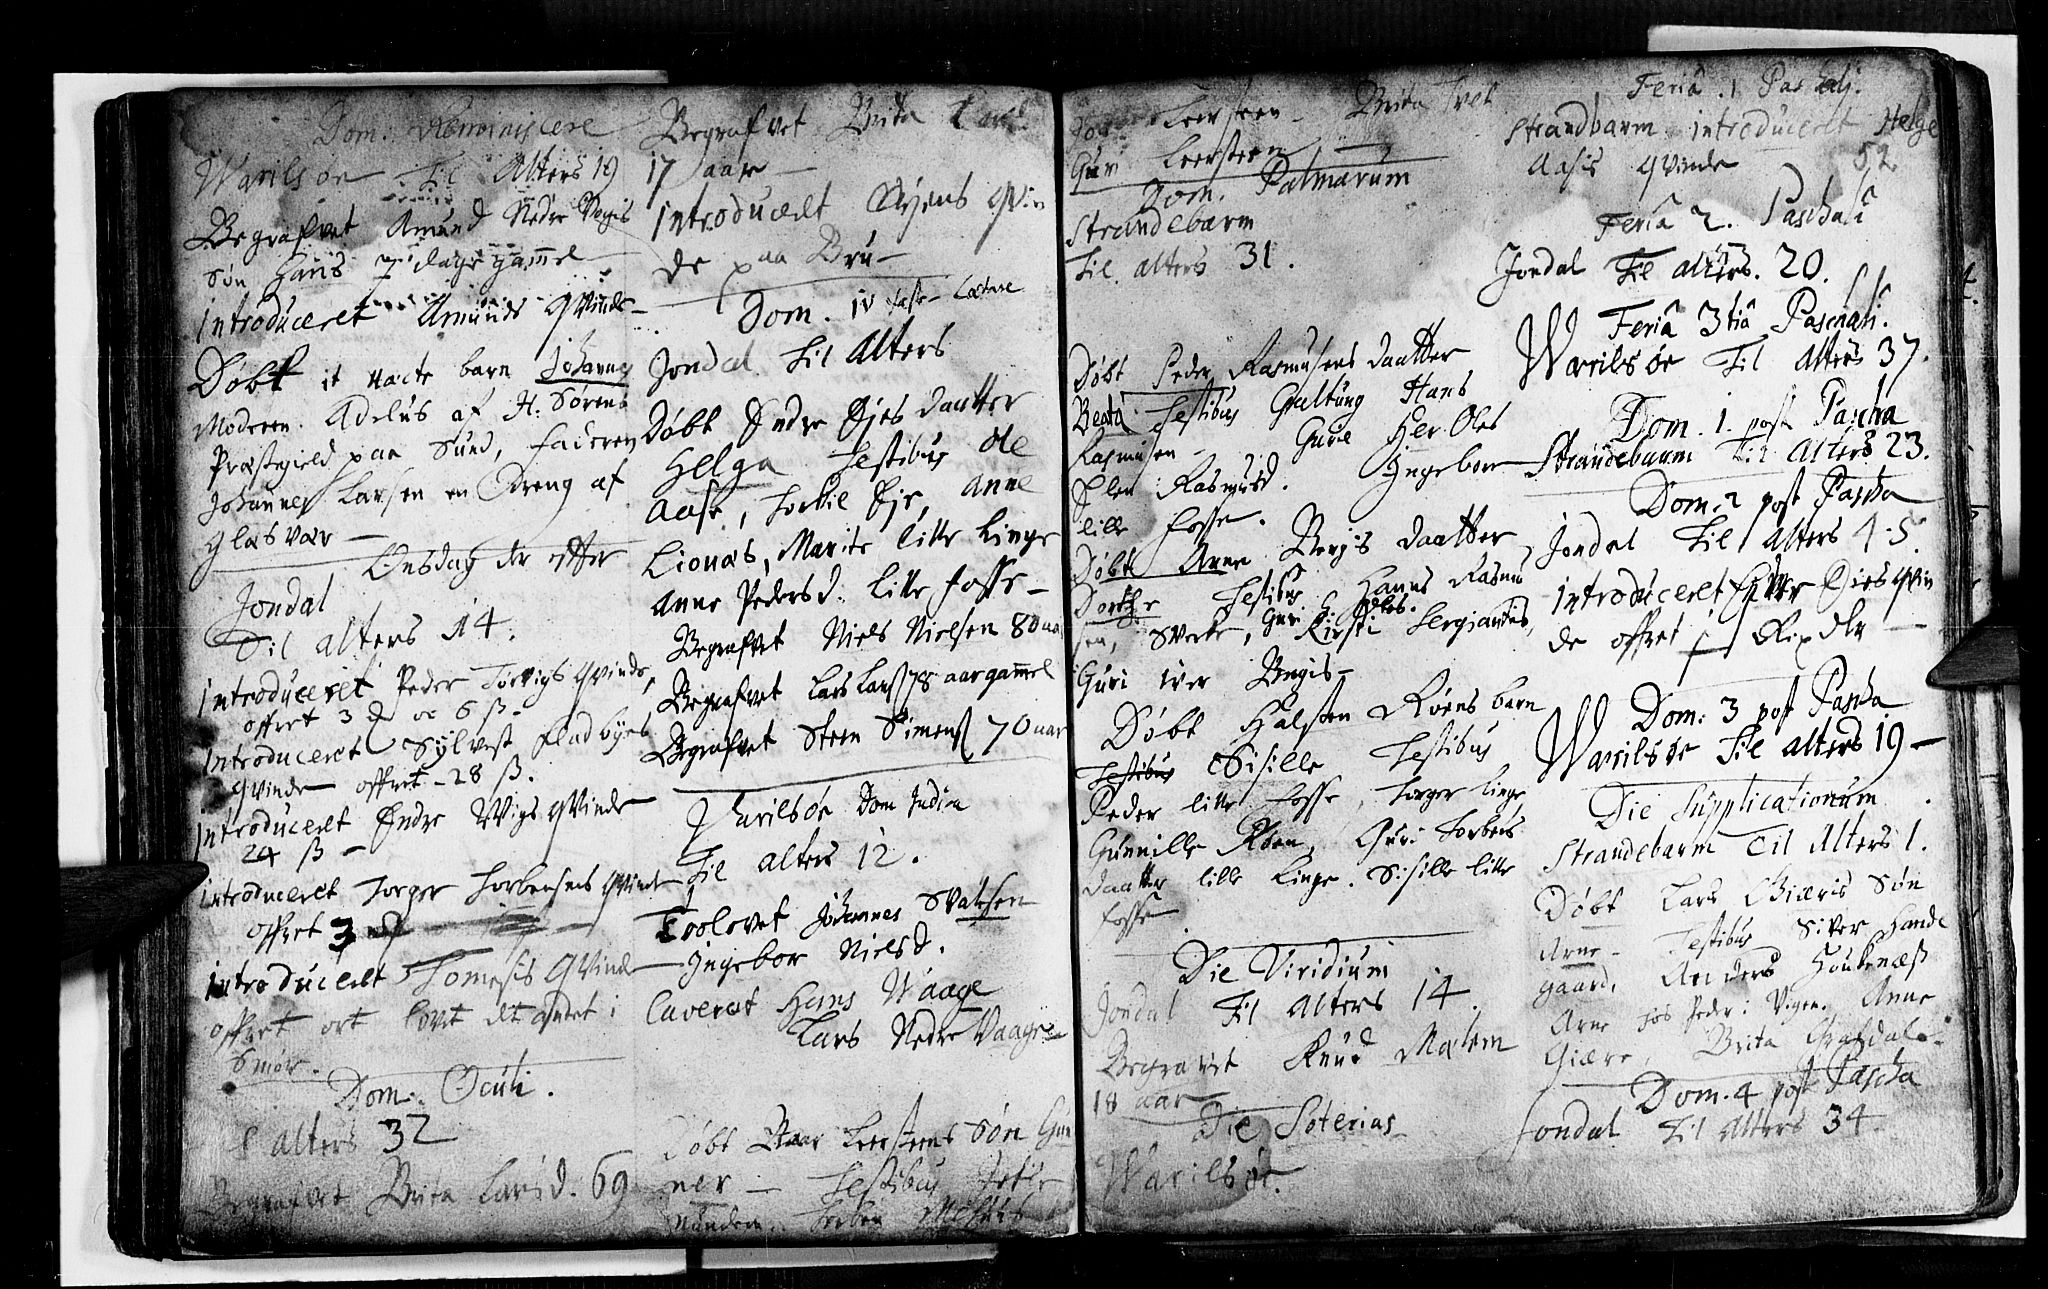 Dom. Reminiscere
Warilsøe Til Alters 19
Begrafvet Amund Nedre Vegis
søn Hans 7 dage gammel
Introduceret Amunds qvinde
Døbt it Uæcte barn Johannes
Moderen Adelus af H: Sørens
Præstegield paa Sund, faderen
Johannes Larsen en Dreng af
glas vær
Onsdag der efter
Jondal
Til alters 14.
Introduceret Peder Torvigs qvinde
offret 3 oc 6 ß
Introduceret Sylvest qvinde offret 28 ß.
Introduceret Endre Wigs qvinde
24 ß
Introduceret Torger Torbensens qvinde
offret 3
Introduceret Tomesis qvinde
offret ort lovet det andet i
smør.
Dom. Oculi.
alters 32
Begrafvet Brita Larsd. 69
Begrafvet Brita
17 aar
Introduceret Øyens qvin
de paa Bru
Dom. IV fast Lætare
Jondal Til Alters
Døbt Endre Eies daatter
Helga Testibus Ole
Aase, Torkil Eie, Anne
Lionæs, Marite lille Linge
Anne Pedersd. lille fosse
Begrafvet Niels Nielsen 80 aar
Begrafvet Lars Larsß 78 aar gammel
Begrafvet Steen Simensß 70 aar
Varilsøe Dom Judica
Til alters 12.
Troloвet Johannes
Ingebor Nielsd.
Caverat Hans Waage
Lars Nedre Vaage
Døbt Leersteens søn Gun
ner Testibus
Torben
Leersteen Brita Tvet
Guri Leersteen
Dom. Palmarum
Strandebarm
Til alters 31.
Døbt Peder Rasmusens daatter
Beata Testibus Galtung Hans
Rasmusen Gurie Her Oles
Elen Rasmusd. Ingebor
lille fosse.
Døbt Arne Bergis daatter
Dorthe Testibus Hanns Rasmu
sen, Sverke, Gur. Oles. Kirsti Sergiantis,
Guri iver Bergis
Døbt Halsten Røens barn
Testibus Sisille Testibus
Peder lille fosse, Torger Linge
Gunnille Røen, Guri Torbens
daatter lille Linge. Sisille lille
fosse
Die Viridium
Jondal Til Alters 14.
Begravet Knud Mælem
18 aar
Die Soterias
Warilsøe.
Feria 1 Paschali.
Strandbarm introduceret Helge
Aasis qvinde
52
Feria 2. Paschali
Jondal Til alters. 20.
Feria 3tia Paschali.
Warilsøe Til Alters 37.
Dom. 1. post Pascha
Strandebarm Til Alters 23.
Dom. 2 post Pascha
Jondal Til Alters 45.
Introduceret Eies qvin
de offret 1 Rixdlr
Dom: 3 post Pascha
Warilsøe Til alters 19
Die Supplicationum
Strandebarm Til Alters 1.
Døbt Lars Giæris søn
Arne Testibus Siver Hande
gaard, Anders Houkenæß
Arne hos Peder i Vigen. Anne
Giære, Brita Grafdal
Dom. 4 post Pascha
Jondal Til Alters 34